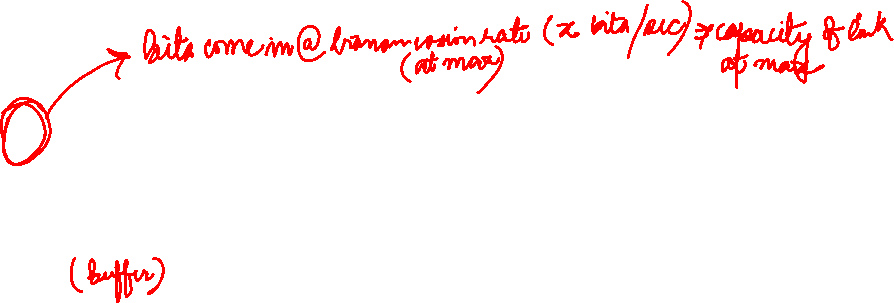 bits come in @ transmission rate (x bits/sec) ⇒ capacity of link
(at max) at max
(buffer)